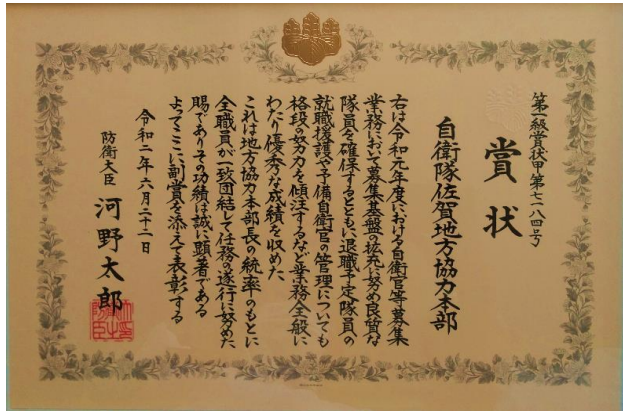 第一級賞状甲第七一八四号
賞状
自衛隊佐賀地方協力本部
右は令和元年度における自衛官等募集
業務において募集基盤の拡充に努め良質な
隊員を確保するとともに、退職予定隊員の
就職援護や予備自衛官の管理についても
格段の努力を傾注するなど業務全般に
わたり優秀な成績を収めた
これは地方協力本部長の統率のもとに
全職員が一致団結して任務の遂行に努めた
賜でありその功績は誠に顕著である
よってここに副賞を添えて表彰する
令和二年六月二十二日
防衛大臣 河野太郎